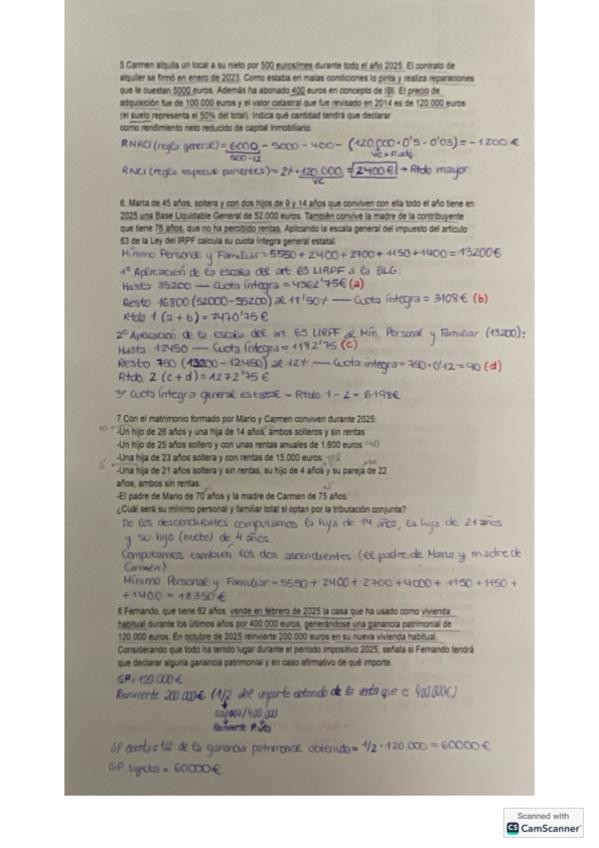 5.Carmen alquila un local a su nieto por 500 euros/mes durante todo el año 2025. El contrato de
alquiler se firmó en enero de 2023. Como estaba en malas condiciones lo pinta y realiza reparaciones
que le cuestan 5000 euros. Además ha abonado 400 euros en concepto de IBI. El precio de
adquisición fue de 100.000 euros y el valor catastral que fue revisado en 2014 es de 120.000 euros
(el suelo representa el 50% del total). Indica qué cantidad tendrá que declarar
como rendimiento neto reducido de capital Inmobiliario.
RNRCI (regla general) = 6000 - 5000 - 400 - (120.000·0'5·0'03) = -1200 €
500·12
VC > P.adq.
RNCI (regla especial parientes) = 2%·120.000 = 2400€ → Rtdo mayor.
VC
6. María de 45 años, soltera y con dos hijos de 9 y 14 años que conviven con ella todo el año tiene en
2025 una Base Liquidable General de 52.000 euros. También convive la madre de la contribuyente
que tiene 76 años, que no ha percibido rentas. Aplicando la escala general del impuesto del artículo
63 de la Ley del IRPF calcula su cuota íntegra general estatal.
Mínimo Personal y Familiar = 5550 + 2400 + 2700 + 1150 + 1400 = 13200€
1º Aplicación de la escala del art 63 LIRPF a la BLG:
Hasta 35200 — Cuota íntegra = 4362'75€ (a)
Resto 16800 (52000-35200) al 18'50% — Cuota íntegra = 3108€ (b)
Rtdo 1 (a+b) = 7470'75€
2º Aplicación de la escala del art. 63 LIRPF al Mín. Personal y Familiar (13200):
Hasta 12450 — Cuota íntegra = 1182'75 (c)
Resto 750 (13200 - 12450) al 12% — Cuota íntegra = 750·0'12 = 90 (d)
Rtdo 2 (c+d) = 1272'75€
3º Cuota íntegra general estatal = Rtdo 1 - 2 = 6198€
7.Con el matrimonio formado por Mario y Carmen conviven durante 2025:
-Un hijo de 26 años y una hija de 14 años, ambos solteros y sin rentas
-Un hijo de 25 años soltero y con unas rentas anuales de 1.600 euros
-Una hija de 23 años soltera y con rentas de 15.000 euros.
-Una hija de 21 años soltera y sin rentas, su hijo de 4 años y su pareja de 22
años, ambos sin rentas.
-El padre de Mario de 70 años y la madre de Carmen de 75 años.
¿Cuál será su mínimo personal y familiar total si optan por la tributación conjunta?
De los descendientes computamos la hija de 14 años, la hija de 21 años
y su hijo (nieto) de 4 años.
Computamos también los dos ascendientes (el padre de Mario y madre de
Carmen)
Mínimo Personal y Familiar = 5550 + 2400 + 2700 + 4000 + 1150 + 1150 +
+ 1400 = 18350€
8.Fernando, que tiene 62 años, vende en febrero de 2025 la casa que ha usado como vivienda
habitual durante los últimos años por 400.000 euros, generándose una ganancia patrimonial de
120.000 euros. En octubre de 2025 reinvierte 200.000 euros en su nueva vivienda habitual.
Considerando que todo ha tenido lugar durante el período impositivo 2025, señala si Fernando tendrá
que declarar alguna ganancia patrimonial y en caso afirmativo de qué importe.
GP = 120.000€
Reinvierte 200.000€ (1/2 del importe obtenido de la venta que es 400.000€)
200.000/400.000
Reinvierte P.vta
GP exenta = 1/2 de la ganancia patrimonial obtenida = 1/2 · 120.000 = 60000€
GP sujeta = 60000€
Scanned with
CS CamScanner